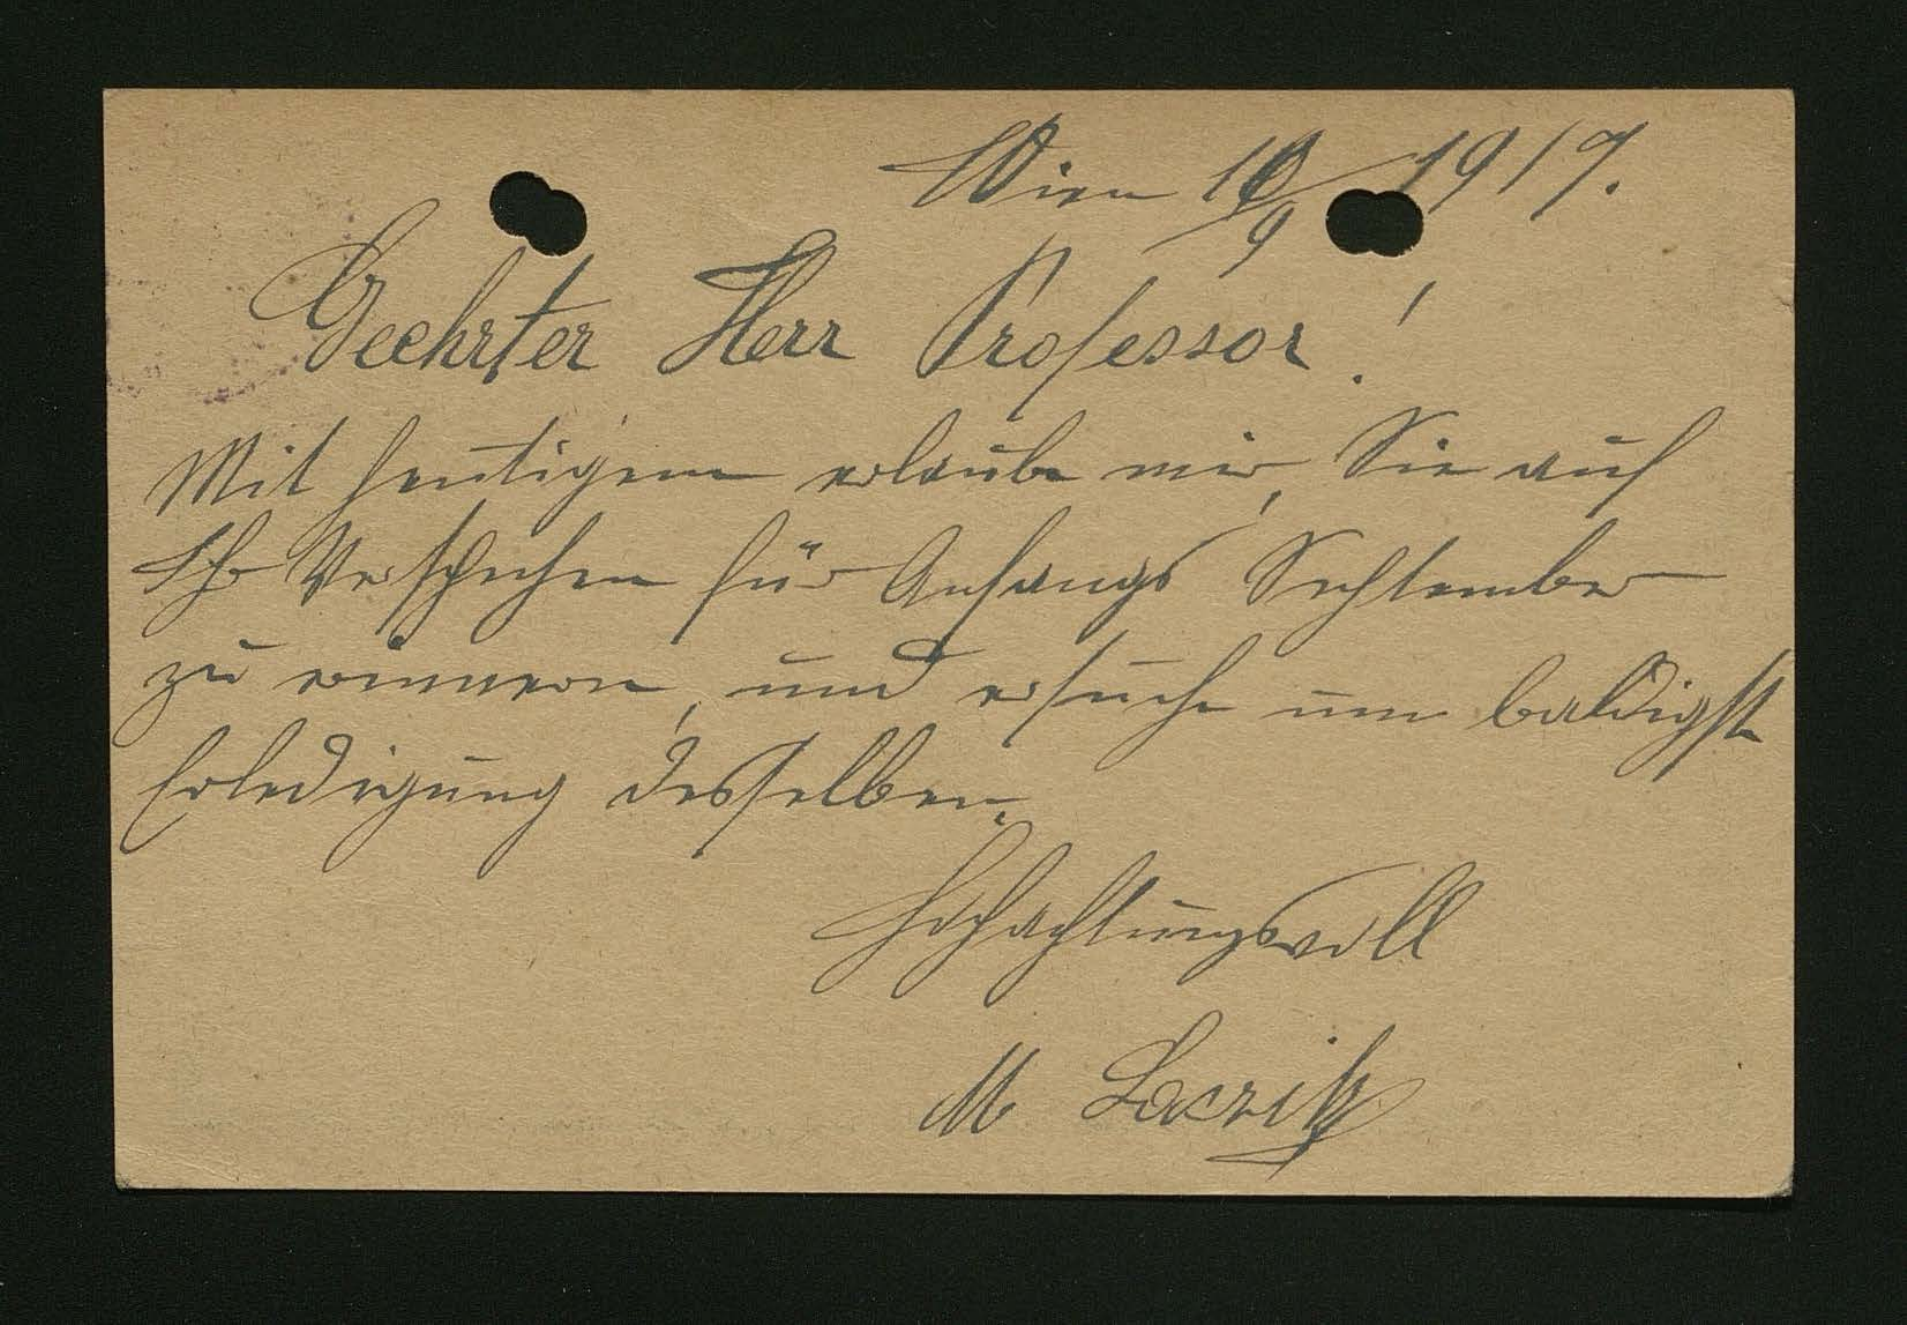 Wien 10/9 1917.
Geehrter Herr Professor!
Mit heutigem erlaube mir, Sie auf
Ihr Versprechen für Anfangs September
zu erinnern, und ersuche um baldigste
Erledigung desselben.
Hochachtungsvoll
M